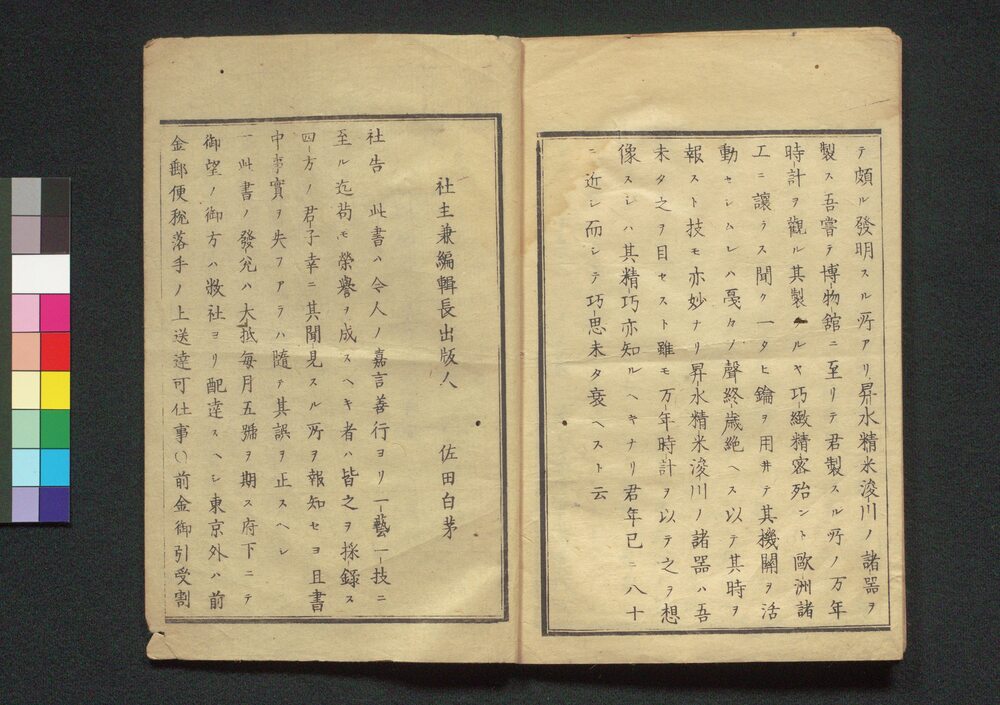 テ頗ル發明スル所アリ昇水精米浚川ノ諸器ヲ
製ス吾嘗テ博物館ニ至リテ君製スル所ノ万年
時計ヲ觀ル其製タルヤ巧緻精密殆ント歐洲諸
工ニ讓ラス聞ク一タヒ鑰ヲ用井テ其機關ヲ活
動セシムレハ戞々ノ聲終歳絶ヘス以テ其時ヲ
報スト技モ亦妙ナリ昇水精米浚川ノ諸器ハ吾
未タ之ヲ目セスト雖モ万年時計ヲ以テ之ヲ想
像スレハ其精巧亦知ルヘキナリ君年已ニ八十
ニ近シ而シテ巧思未タ衰ヘスト云
社主兼編輯長出版人　佐田白茅
社告　此書ハ今人ノ嘉言善行ヨリ一藝一技ニ
至ル迄苟モ榮譽ヲ成スヘキ者ハ皆之ヲ採録ス
四方ノ君子幸ニ其聞見スル所ヲ報知セヨ且書
中事實ヲ失フアラハ隨テ其誤ヲ正スヘレ
一此書ノ發兌ハ大抵毎月五號ヲ期ス府下ニテ
御望ノ御方ハ敝社ヨリ配達スヘシ東京外ハ前
金郵便税落手ノ上送達可仕事〇前金御引受割